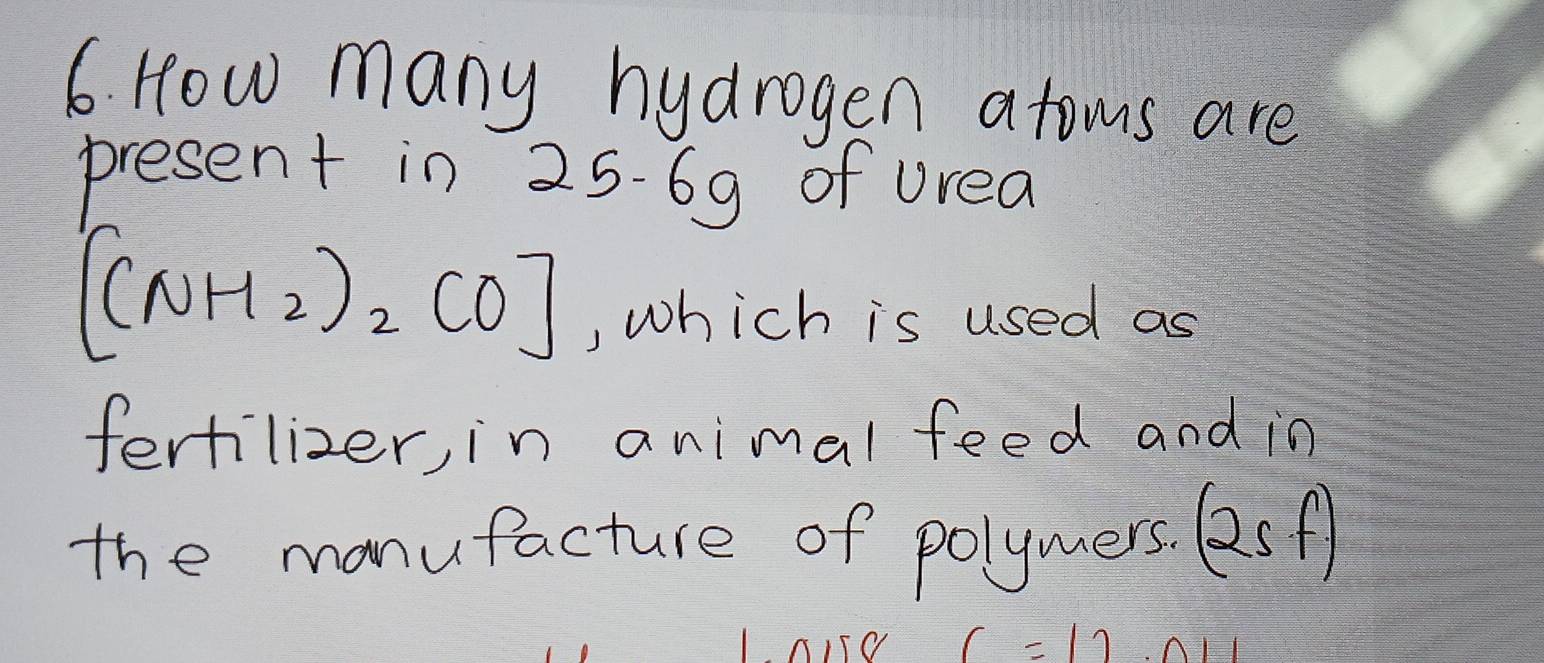 6. How many hydrogen atoms are
present in 25-6g of urea
[(NH2)2 CO], which is used as
fertilizer, in animal feed and in
the manufacture of polymers. (2s.f.)